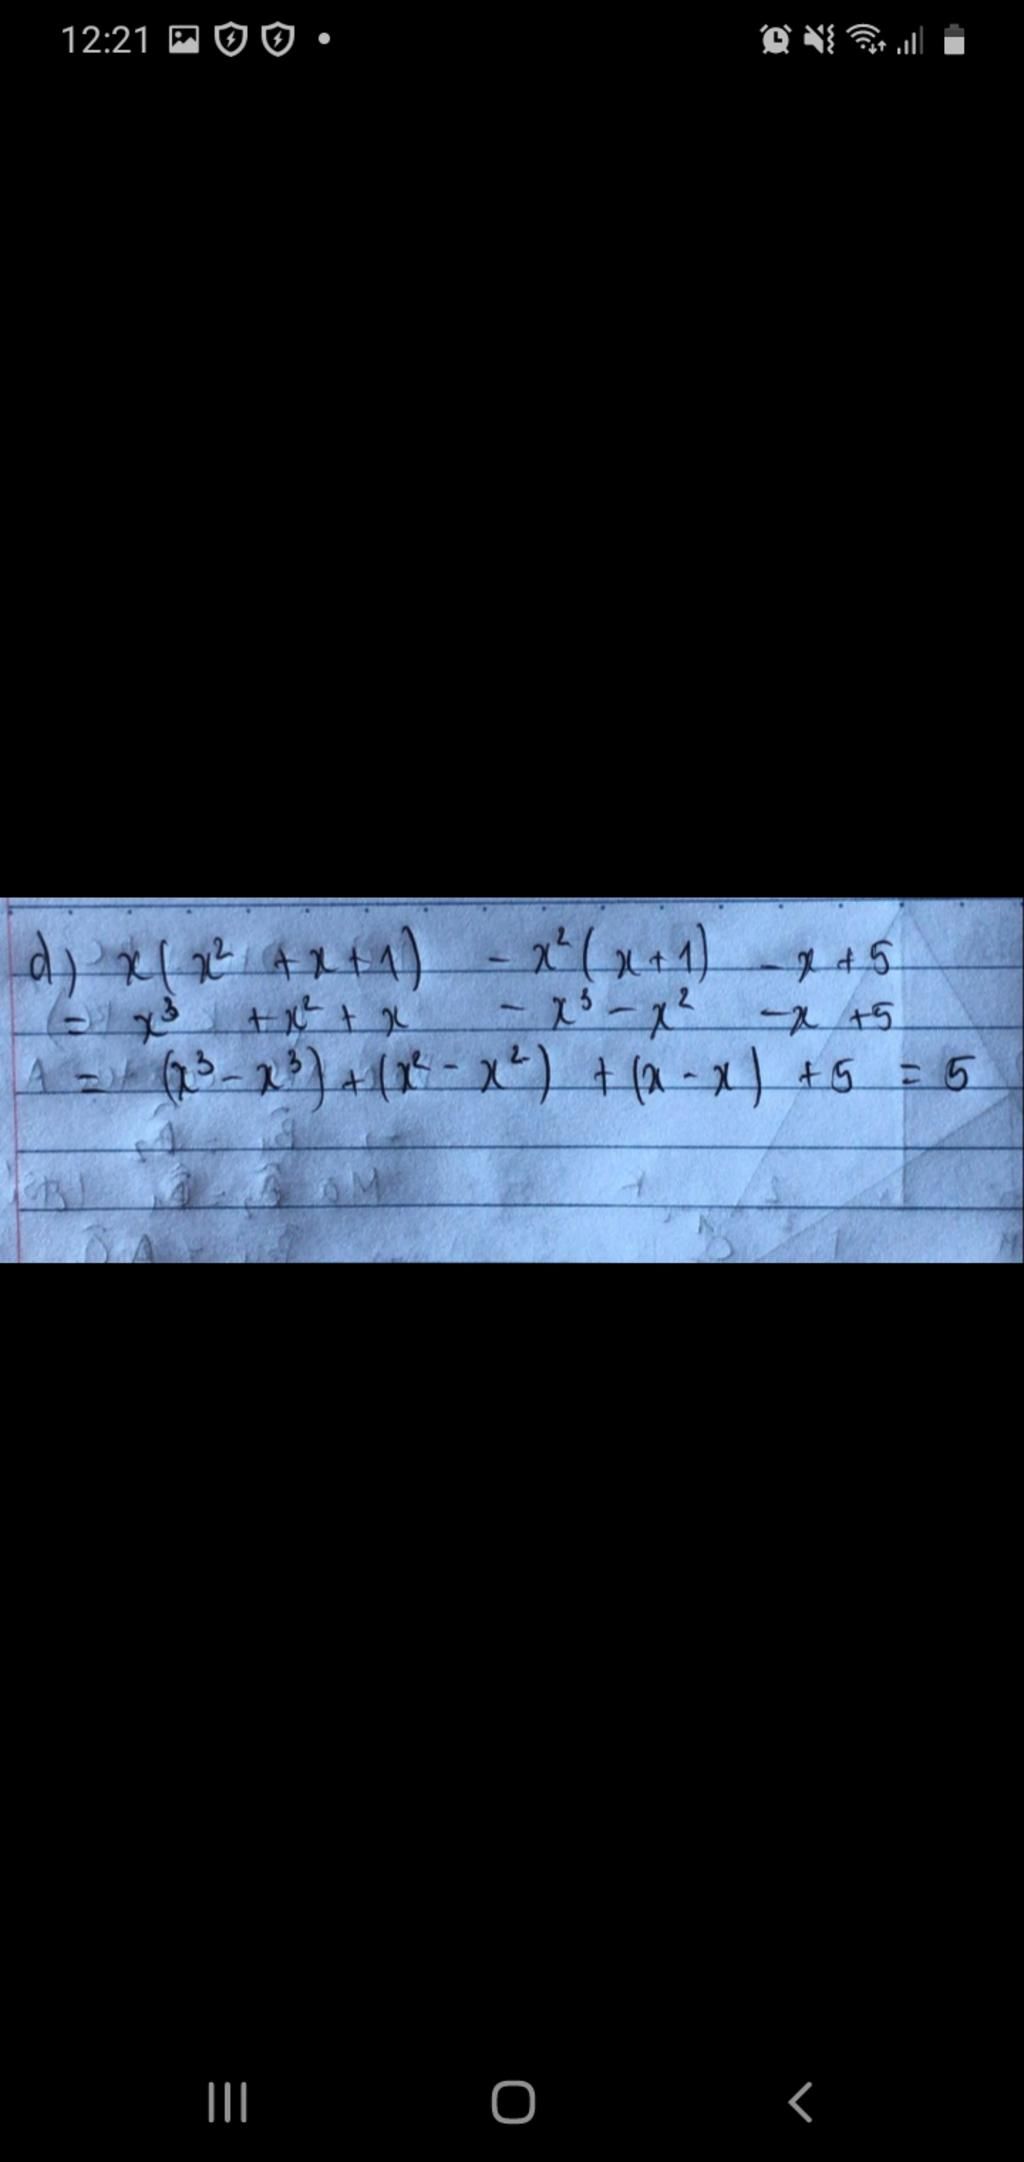 12:21
d) x(x² + x + 1) - x²(x + 1) - x + 5
= x³ + x² + x - x³ - x² - x + 5
= (x³ - x³) + (x² - x²) + (x - x) + 5 = 5